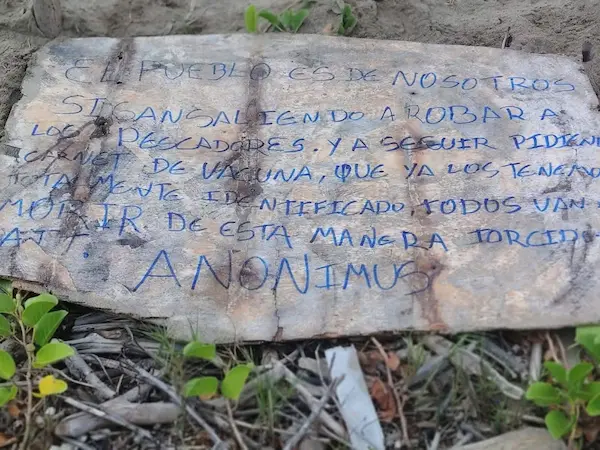 EL PUEBLO ES DE NOSOTROS
SIGAN SALIENDO A ROBAR A
LOS PESCADORES. Y A SEGUIR PIDIEND
CARNET DE VACUNA, QUE YA LOS TENEMO
TOTALMENTE IDENTIFICADO, TODOS VAN
MORIR DE ESTA MANERA TORCID
ATT:
ANONIMUS